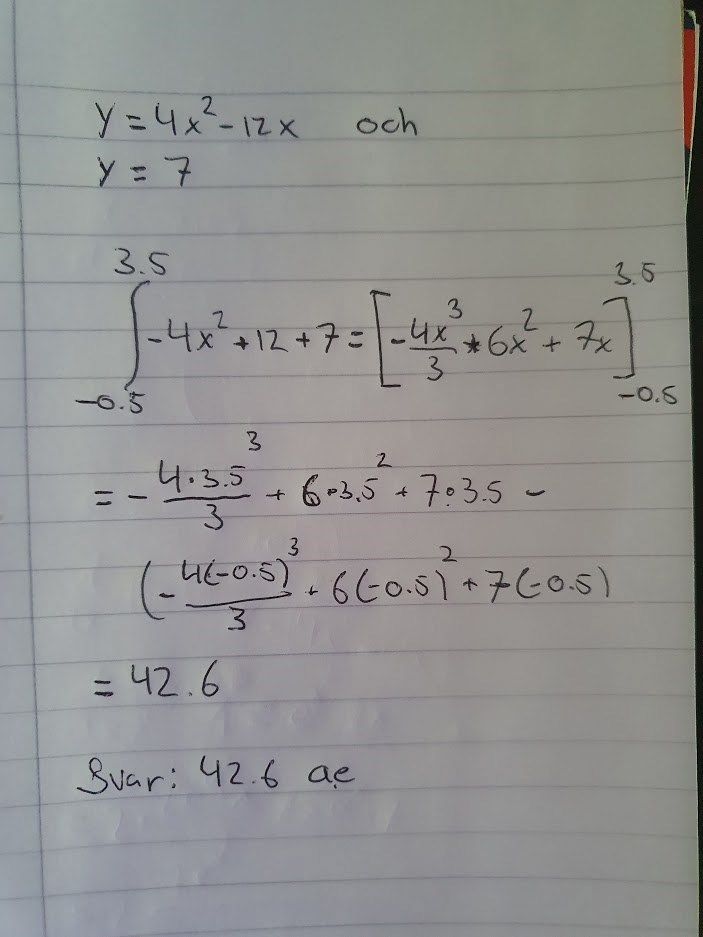 y = 4x² - 12x och
y = 7
3.5 3.5
∫ -4x² + 12 + 7 = [ -4x³/3 + 6x² + 7x ]
-0.5 -0.5
= - 4·3.5³/3 + 6·3.5² + 7·3.5 -
(- 4(-0.5)³/3 + 6(-0.5)² + 7(-0.5)
= 42.6
Svar: 42.6 ae